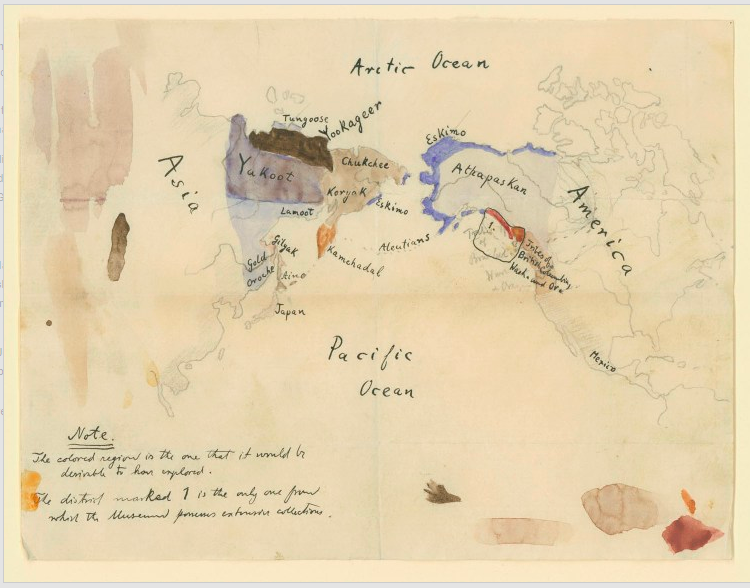 Arctic Ocean
Tungoose
Yookageer
Eskimo
Asia
Yakoot
Chukchee
Athapaskan
America
Koryak
Lamoot
Eskimo
1.
Aleutians
Gilyak
Kamchadal
Gold
Oroche
Aino
Tribes of
British Columbia,
Wash. and Ore.
Japan
Pacific
Ocean
Mexico
Note.
The colored region is the one that it would be
desirable to have explored.
The district marked 1 is the only one from
which the Museum possesses extensive collections.